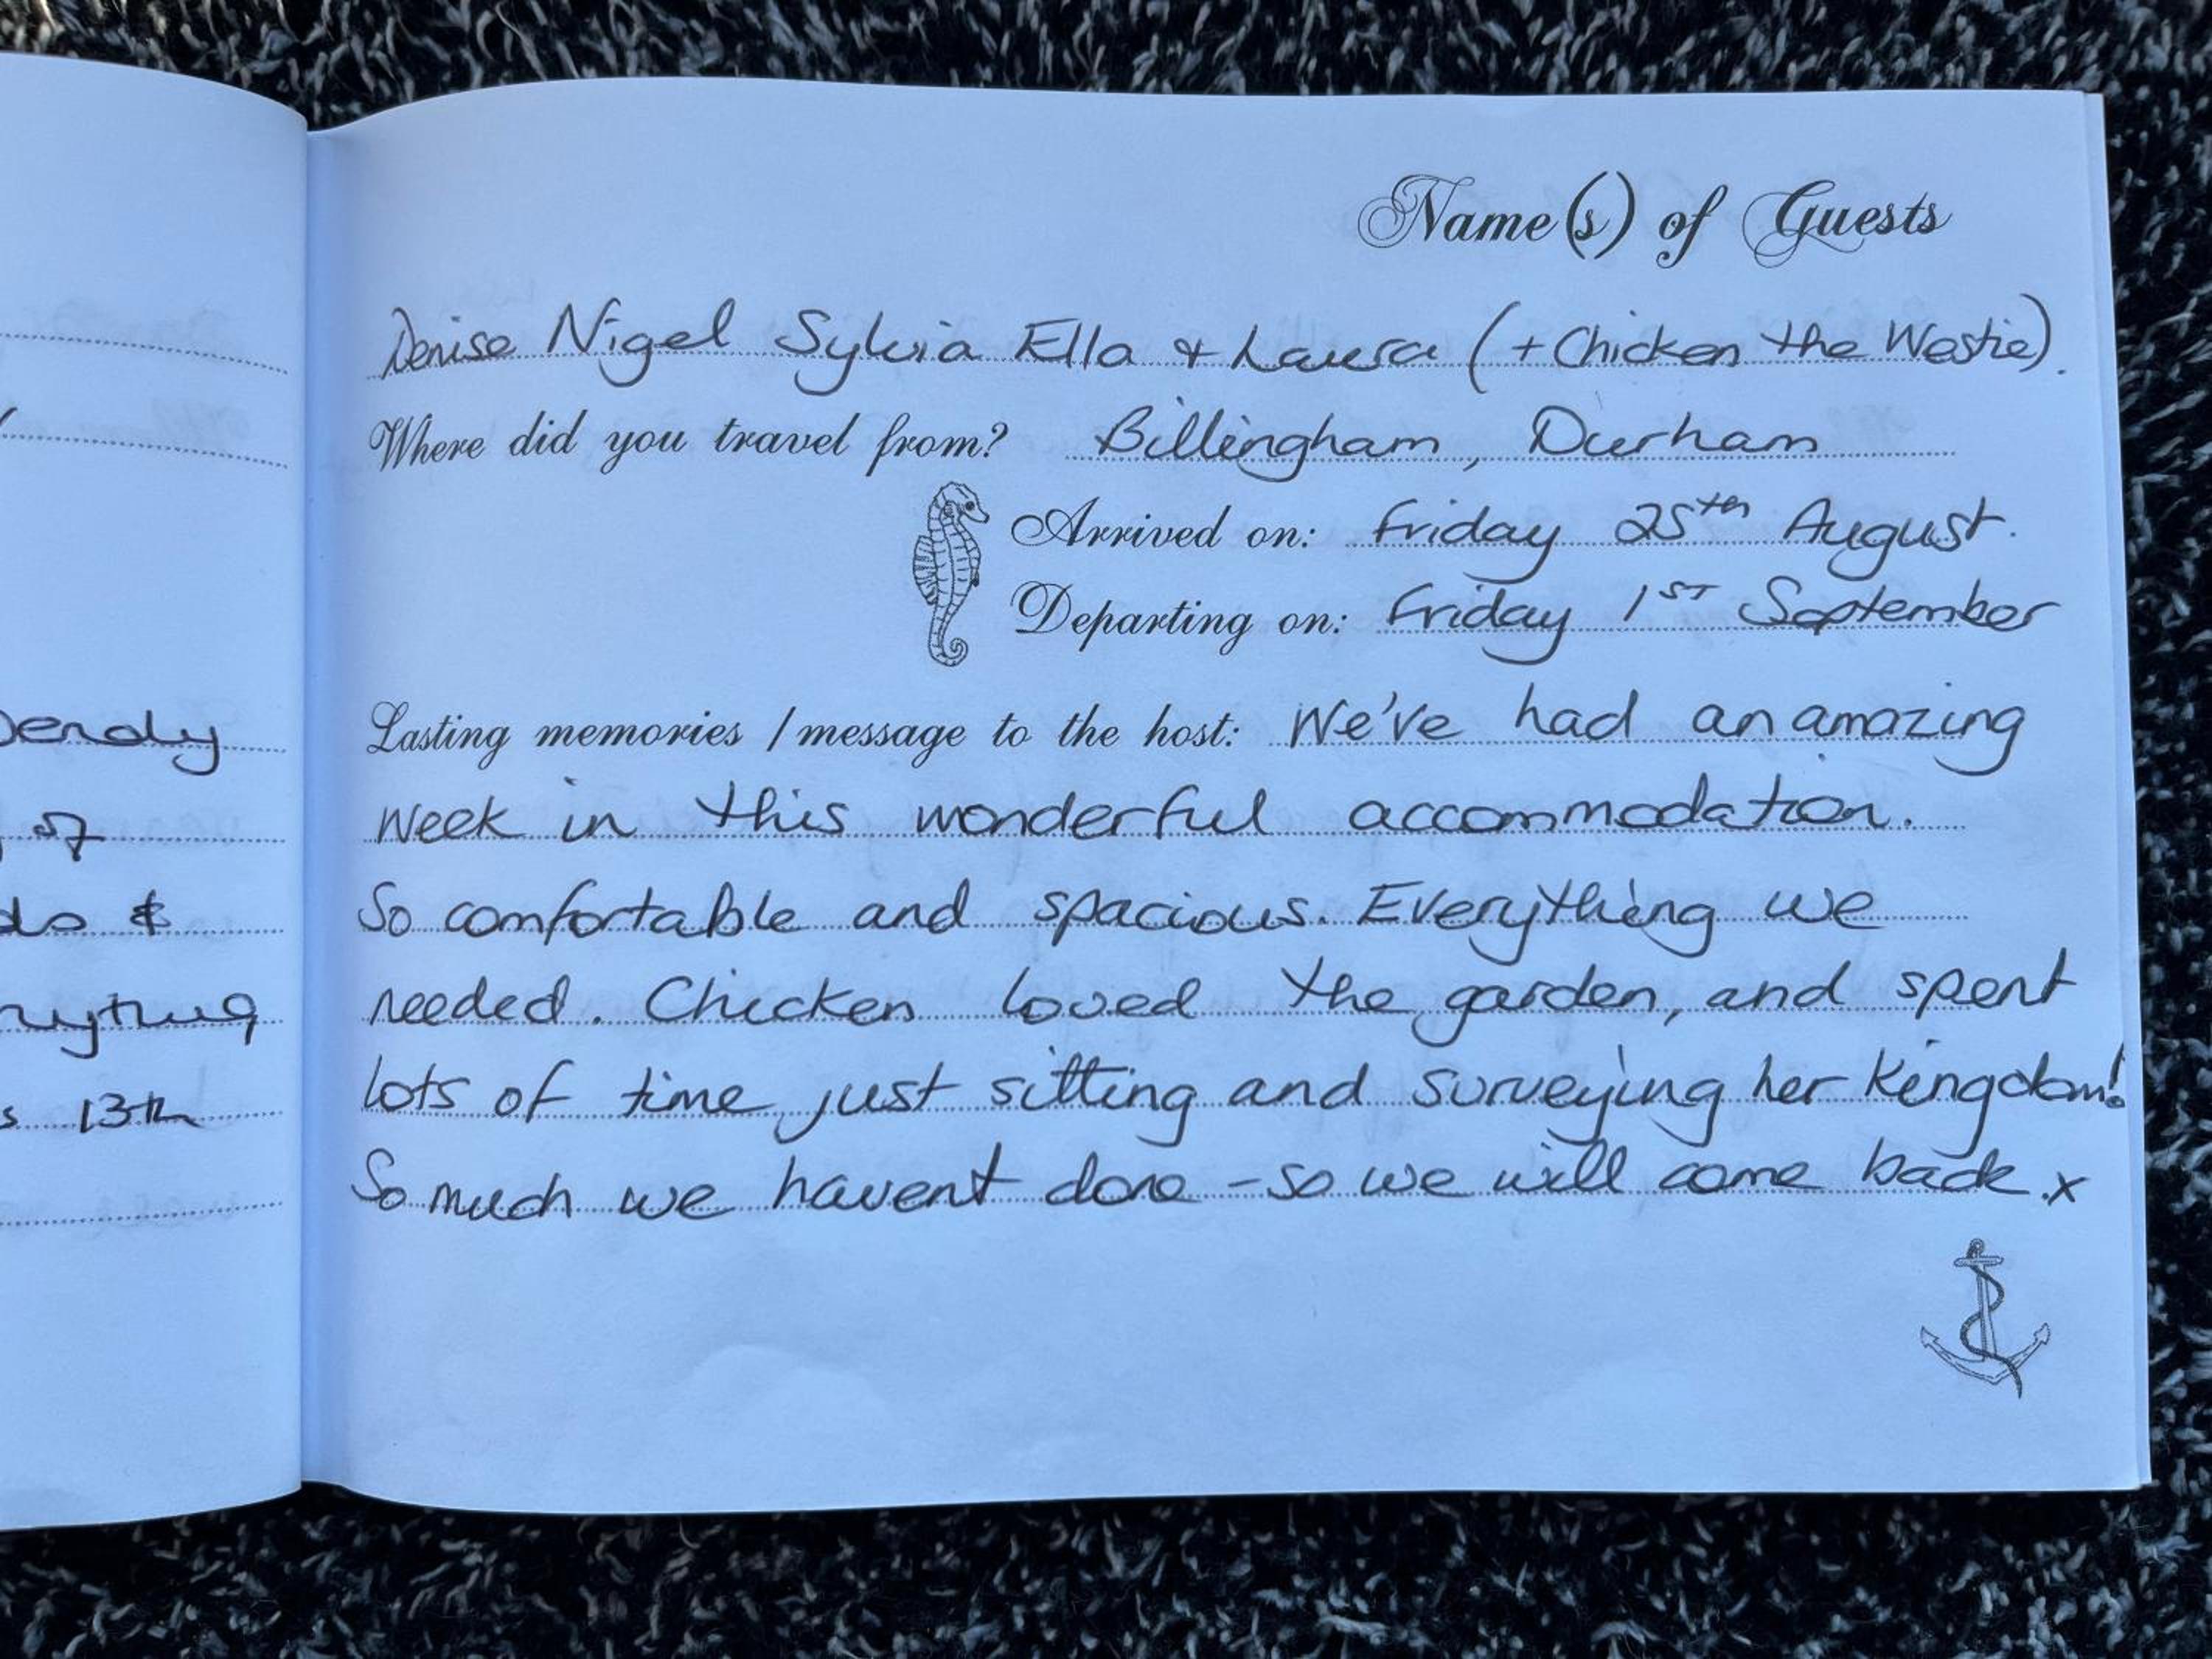 endy
of
ds &
rything
s 13th
Name(s) of Guests
Denise Nigel Sylvia Ella & Laura (+ Chicken the Westie).
Where did you travel from? Billingham, Durham
Arrived on: Friday 25th August.
Departing on: Friday 1st September
Lasting memories / message to the host: We've had an amazing
week in this wonderful accommodation.
So comfortable and spacious. Everything we
needed. Chicken loved the garden, and spent
lots of time just sitting and surveying her Kingdom!
So much we havent done - so we will come back. x